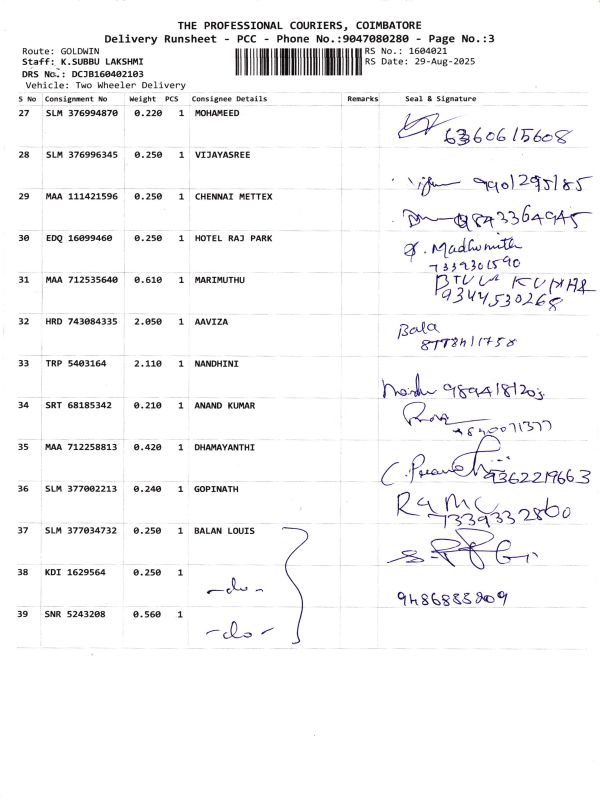 THE PROFESSIONAL COURIERS, COIMBATORE
Delivery Runsheet - PCC - Phone No.:9047080280 - Page No.:3
Route: GOLDWIN RS No.: 1604021
Staff: K.SUBBU LAKSHMI RS Date: 29-Aug-2025
DRS No.: DCJB160402103
Vehicle: Two Wheeler Delivery
S No Consignment No Weight PCS Consignee Details Remarks Seal & Signature
27 SLM 376994870 0.220 1 MOHAMEED
6360615608
28 SLM 376996345 0.250 1 VIJAYASREE
9901295185
29 MAA 111421596 0.250 1 CHENNAI METTEX
9843364945
30 EDQ 16099460 0.250 1 HOTEL RAJ PARK
Madhumith
7339301590
31 MAA 712535640 0.610 1 MARIMUTHU
KUMAR
9344530268
32 HRD 743084335 2.050 1 AAVIZA
Bala
33 TRP 5403164 2.110 1 NANDHINI
34 SRT 68185342 0.210 1 ANAND KUMAR
35 MAA 712258813 0.420 1 DHAMAYANTHI
9362219663
36 SLM 377002213 0.240 1 GOPINATH
7339332860
37 SLM 377034732 0.250 1 BALAN LOUIS
38 KDI 1629564 0.250 1 -do-
9486885809
39 SNR 5243208 0.560 1 -do-